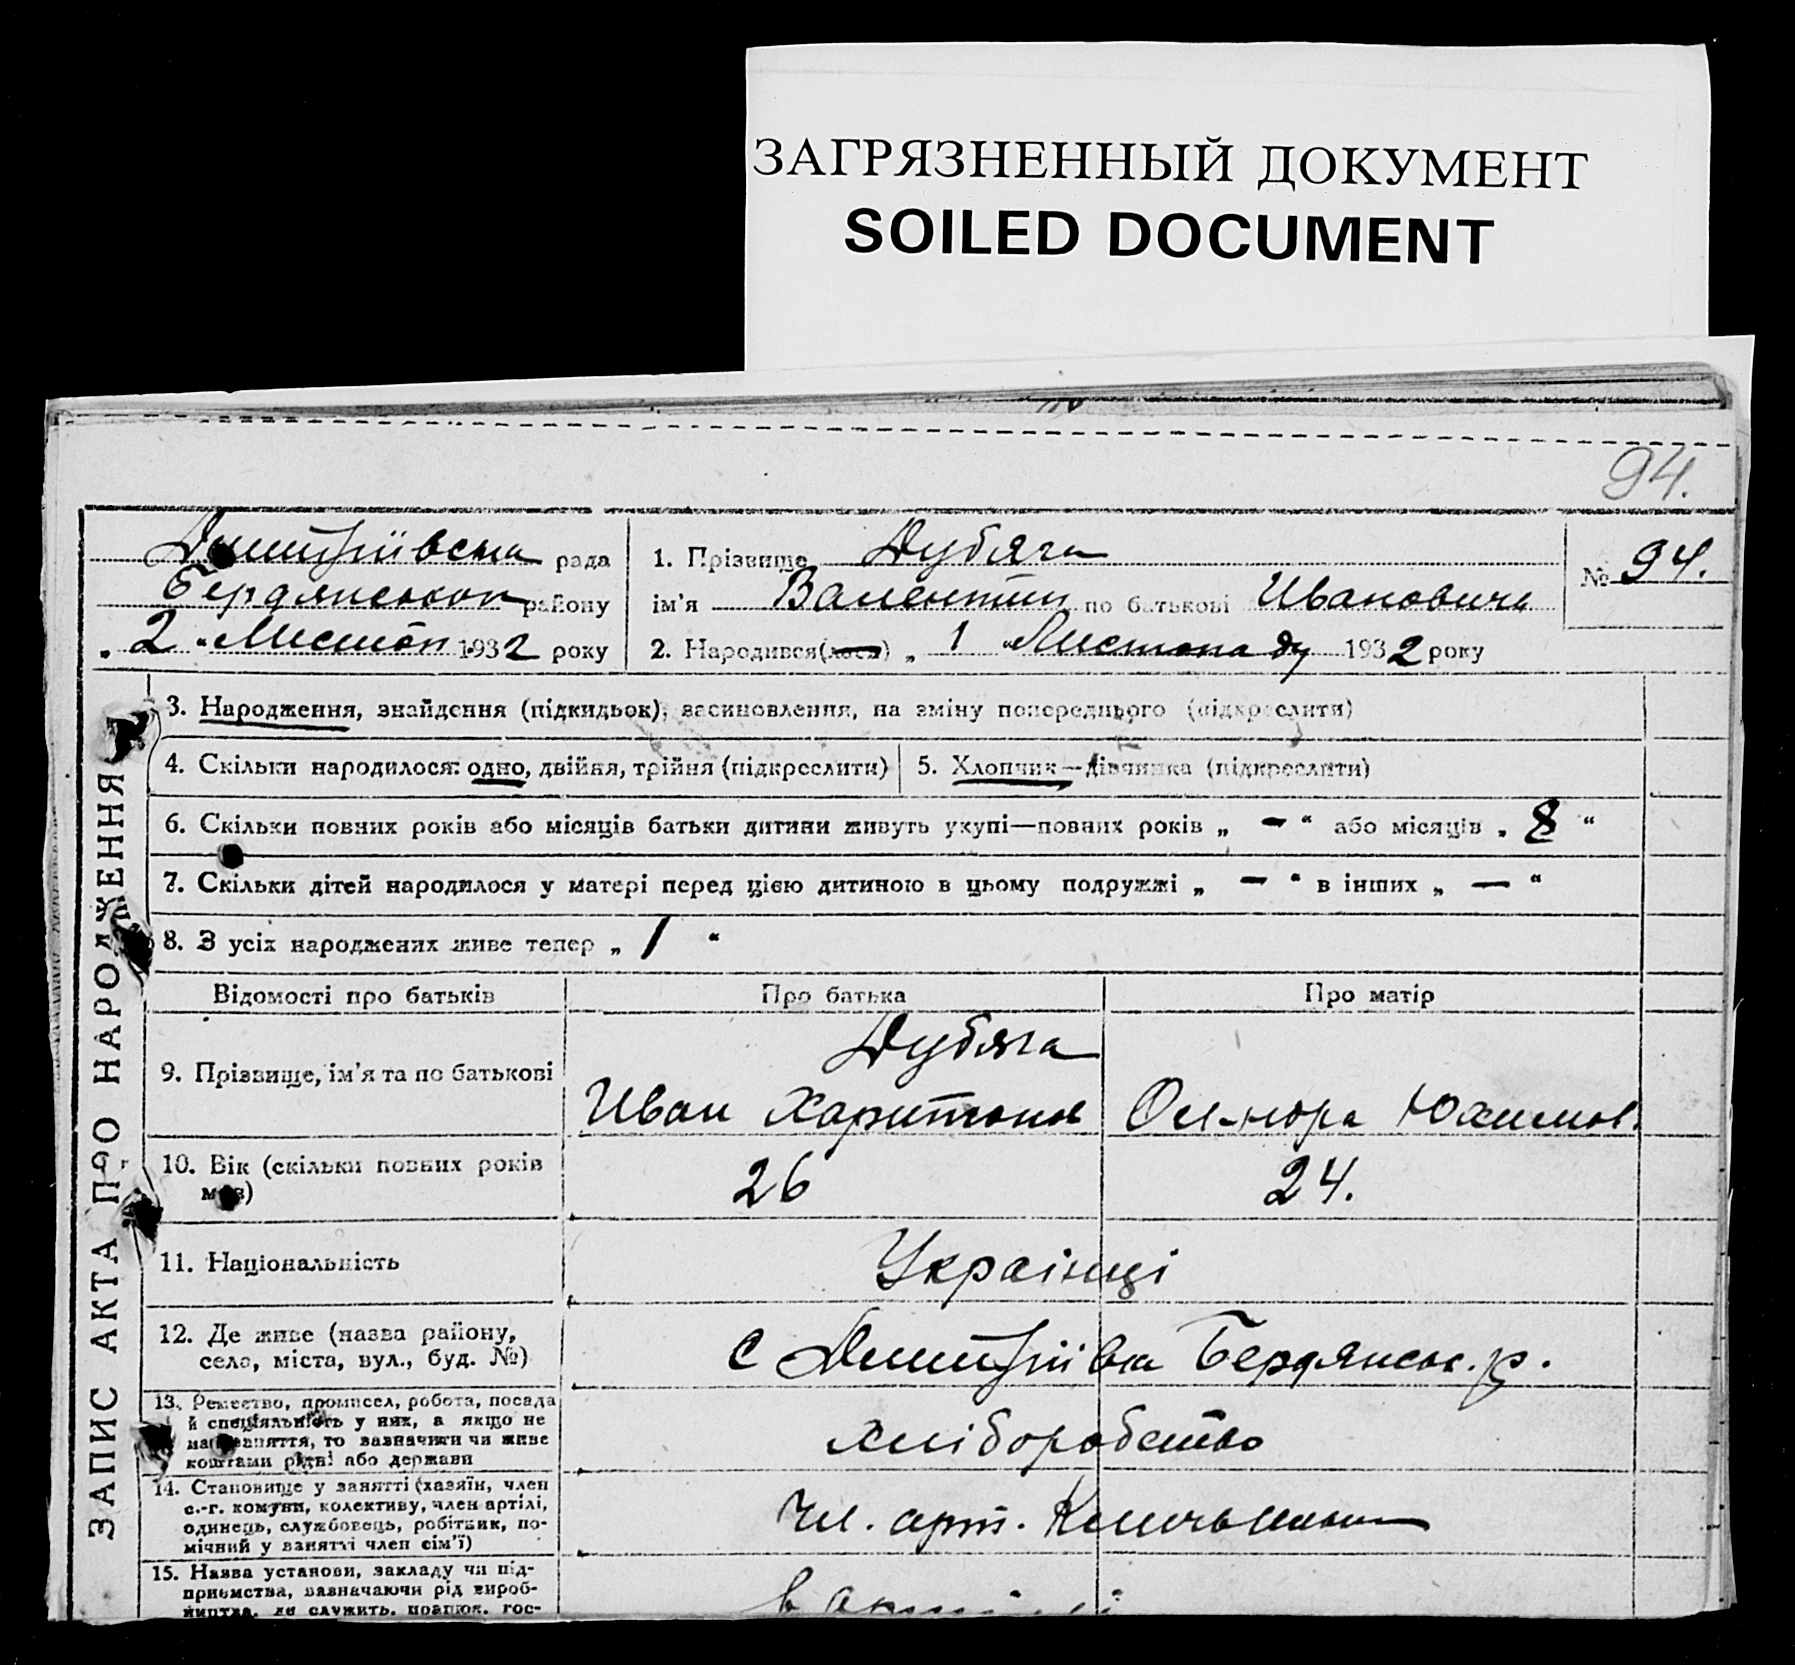 ЗАГРЯЗНЕННЫЙ ДОКУМЕНТ
SOILED DOCUMENT
94.
Дмитріївська рада
Бердянськ району
„ 2 “ Листоп 1932 року
1. Прізвище Дубяга
ім'я Валентин по батькові Иванович
2. Народився(лася) „ 1 “ Листопаду 1932 року
№ 94.
ЗАПИС АКТА ПРО НАРОДЖЕННЯ
3. Народження, знайдення (підкидьок), засиновлення, на зміну попереднього (підкреслити)
4. Скільки народилося: одно, двійня, трійня (підкреслити)
5. Хлопчик—дівчинка (підкреслити)
6. Скільки повних років або місяців батьки дитини живуть укупі—повних років „ - “ або місяців „ 8 “
7. Скільки дітей народилося у матері перед цією дитиною в цьому подружжі „ — “ в інших „ — “
8. З усіх народжених живе тепер „ 1 “
Відомості про батьків
Про батька
Про матір
9. Прізвище, ім'я та по батькові
Дубяга
Иван Харитонов
Юхимов.
10. Вік (скільки повних років
має)
26
24.
11. Національність
Українці
12. Де живе (назва району,
село, міста, вул., буд. №)
с Дмитріївка Бердянськ. р.
13. Ремество, промисел, робота, посада
й спеціяльність у них, а якщо не
має заняття, то зазначити чи живе
коштами рідні або держави
хліборобство
14. Становище у занятті (хазяїн, член
с.-г. комуни, колективу, член артілі,
одинець, службовець, робітник, по-
мічний у занятті член сім'ї)
Чл. арт.
15. Назва установи, закладу чи під-
приємства, зазначаючи рід вироб-
ництва, де служить, працює, гос-